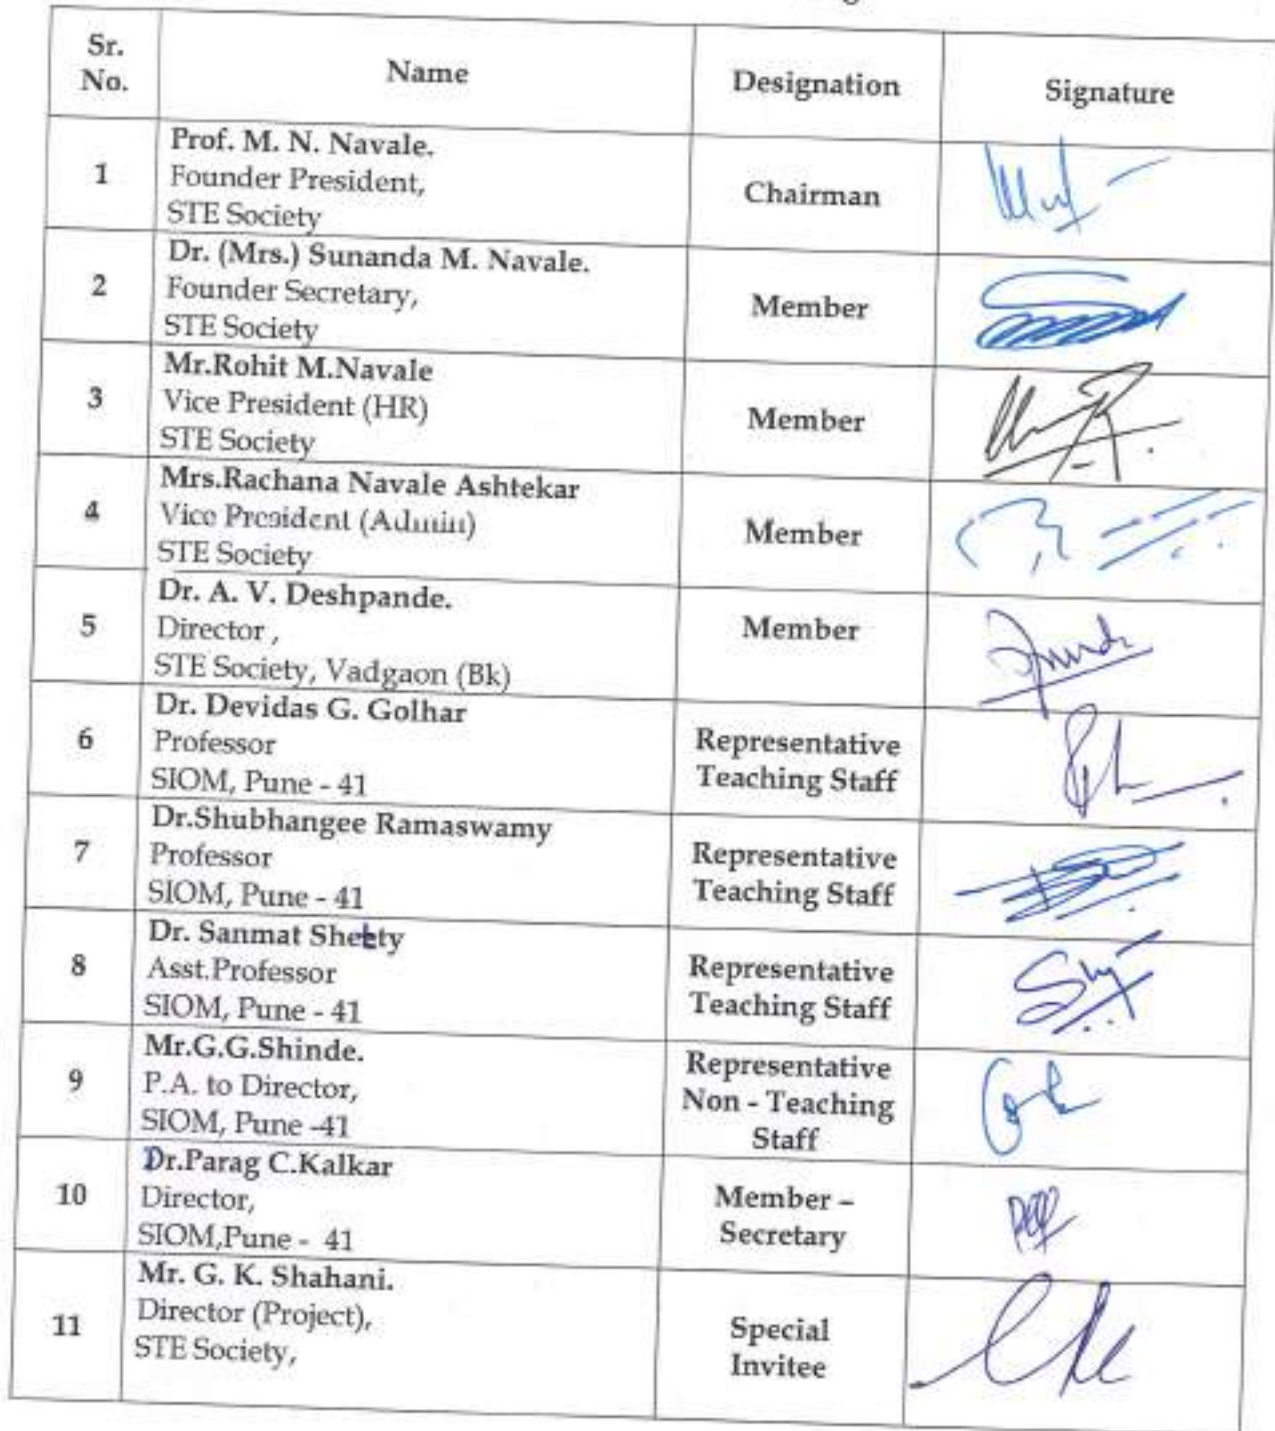 Sr. No. Name Designation Signature
1 Prof. M. N. Navale. Founder President, STE Society Chairman
2 Dr. (Mrs.) Sunanda M. Navale. Founder Secretary, STE Society Member
3 Mr.Rohit M.Navale Vice President (HR) STE Society Member
4 Mrs.Rachana Navale Ashtekar Vice President (Admin) STE Society Member
5 Dr. A. V. Deshpande. Director , STE Society, Vadgaon (Bk) Member
6 Dr. Devidas G. Golhar Professor SIOM, Pune - 41 Representative Teaching Staff
7 Dr.Shubhangee Ramaswamy Professor SIOM, Pune - 41 Representative Teaching Staff
8 Dr. Sanmat Shetty Asst.Professor SIOM, Pune - 41 Representative Teaching Staff
9 Mr.G.G.Shinde. P.A. to Director, SIOM, Pune -41 Representative Non - Teaching Staff
10 Dr.Parag C.Kalkar Director, SIOM,Pune - 41 Member – Secretary
11 Mr. G. K. Shahani. Director (Project), STE Society, Special Invitee